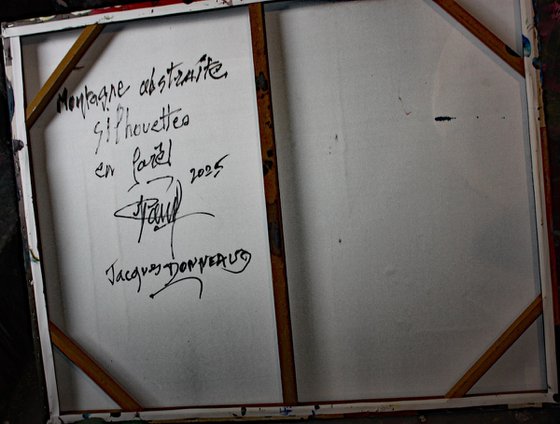 Montagne abstraite
Silhouettes
en
2025
Jacques DONNEAUD